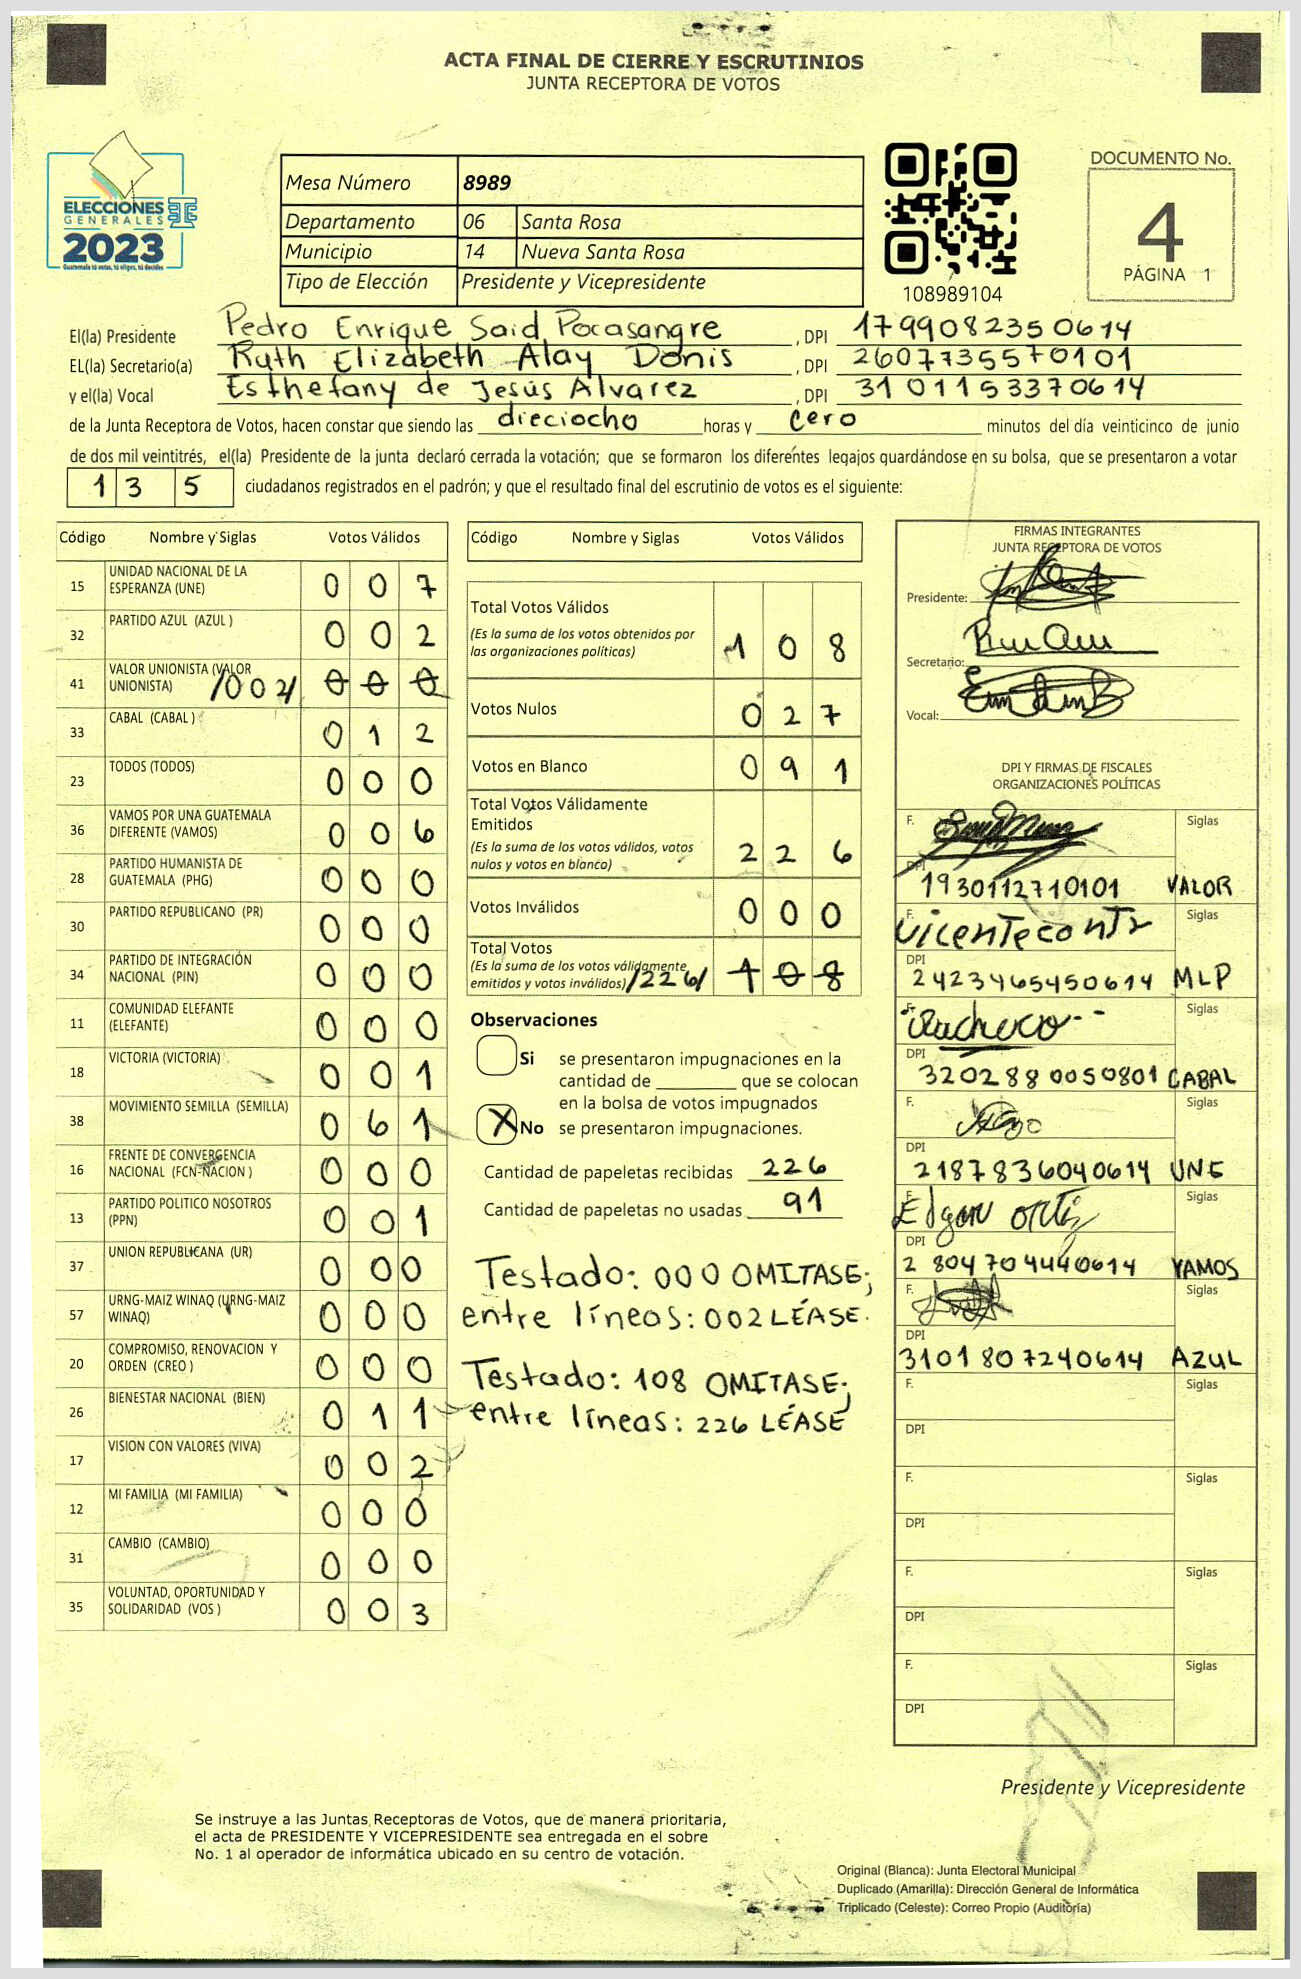 ACTA FINAL DE CIERRE Y ESCRUTINIOS
JUNTA RECEPTORA DE VOTOS
ELECCIONES
GENERALES
2023
Guatemala tú votas, tú eliges, tú decides
Mesa Número 8989
Departamento 06 Santa Rosa
Municipio 14 Nueva Santa Rosa
Tipo de Elección Presidente y Vicepresidente
108989104
DOCUMENTO No.
4
PÁGINA 1
El(la) Presidente Pedro Enrique Said Pocasangre , DPI 1799082350614
EL(la) Secretario(a) Ruth Elizabeth Alay Donis , DPI 2607735570101
y el(la) Vocal Esthefany de Jesús Alvarez , DPI 3101153370614
de la Junta Receptora de Votos, hacen constar que siendo las dieciocho horas y cero minutos del día veinticinco de junio
de dos mil veintitrés, el(la) Presidente de la junta declaró cerrada la votación; que se formaron los diferentes legajos guardándose en su bolsa, que se presentaron a votar
1 3 5 ciudadanos registrados en el padrón; y que el resultado final del escrutinio de votos es el siguiente:
Código Nombre y Siglas Votos Válidos
15 UNIDAD NACIONAL DE LA
ESPERANZA (UNE) 0 0 7
32 PARTIDO AZUL (AZUL ) 0 0 2
41 VALOR UNIONISTA (VALOR
UNIONISTA) /002/ 0 0 0
33 CABAL (CABAL ) 0 1 2
23 TODOS (TODOS) 0 0 0
36 VAMOS POR UNA GUATEMALA
DIFERENTE (VAMOS) 0 0 6
28 PARTIDO HUMANISTA DE
GUATEMALA (PHG) 0 0 0
30 PARTIDO REPUBLICANO (PR) 0 0 0
34 PARTIDO DE INTEGRACIÓN
NACIONAL (PIN) 0 0 0
11 COMUNIDAD ELEFANTE
(ELEFANTE) 0 0 0
18 VICTORIA (VICTORIA) 0 0 1
38 MOVIMIENTO SEMILLA (SEMILLA) 0 6 1
16 FRENTE DE CONVERGENCIA
NACIONAL (FCN-NACION ) 0 0 0
13 PARTIDO POLITICO NOSOTROS
(PPN) 0 0 1
37 UNION REPUBLICANA (UR) 0 0 0
57 URNG-MAIZ WINAQ (URNG-MAIZ
WINAQ) 0 0 0
20 COMPROMISO, RENOVACION Y
ORDEN (CREO ) 0 0 0
26 BIENESTAR NACIONAL (BIEN) 0 1 1
17 VISION CON VALORES (VIVA) 0 0 2
12 MI FAMILIA (MI FAMILIA) 0 0 0
31 CAMBIO (CAMBIO) 0 0 0
35 VOLUNTAD, OPORTUNIDAD Y
SOLIDARIDAD (VOS ) 0 0 3
Código Nombre y Siglas Votos Válidos
Total Votos Válidos
(Es la suma de los votos obtenidos por
las organizaciones políticas) 1 0 8
Votos Nulos 0 2 7
Votos en Blanco 0 9 1
Total Votos Válidamente
Emitidos
(Es la suma de los votos válidos, votos
nulos y votos en blanco) 2 2 6
Votos Inválidos 0 0 0
Total Votos
(Es la suma de los votos válidamente
emitidos y votos inválidos) /226/ 1 0 8
Observaciones
Si se presentaron impugnaciones en la
cantidad de ________ que se colocan
en la bolsa de votos impugnados
X No se presentaron impugnaciones.
Cantidad de papeletas recibidas 226
Cantidad de papeletas no usadas 91
Testado: 000 OMITASE;
entre líneas: 002 LÉASE.
Testado: 108 OMITASE;
entre líneas: 226 LÉASE
FIRMAS INTEGRANTES
JUNTA RECEPTORA DE VOTOS
Presidente:
Secretario:
Vocal:
DPI Y FIRMAS DE FISCALES
ORGANIZACIONES POLÍTICAS
F. Siglas
DPI 1930112710101 VALOR
F. Vicente Siglas
DPI 2423465450614 MLP
F. Pacheco Siglas
DPI 3202880050801 CABAL
F. Siglas
DPI 2187836040614 UNE
F. Edgar Ortiz Siglas
DPI 2804704440614 VAMOS
F. Siglas
DPI 3101807240614 AZUL
F. Siglas
DPI
F. Siglas
DPI
F. Siglas
DPI
F. Siglas
DPI
Presidente y Vicepresidente
Se instruye a las Juntas Receptoras de Votos, que de manera prioritaria,
el acta de PRESIDENTE Y VICEPRESIDENTE sea entregada en el sobre
No. 1 al operador de informática ubicado en su centro de votación.
Original (Blanca): Junta Electoral Municipal
Duplicado (Amarilla): Dirección General de Informática
Triplicado (Celeste): Correo Propio (Auditoría)